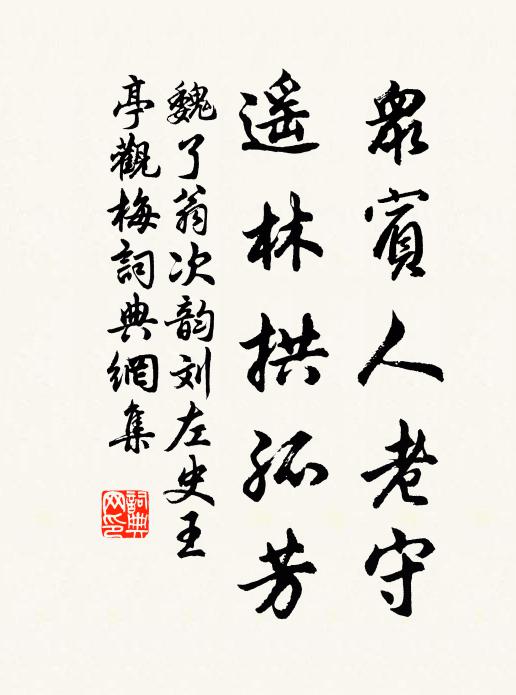 眾賓人老守
遥林拱孤芳
魏了翁次韵刘左史王
亭觀梅詞典網集
詞典
网印